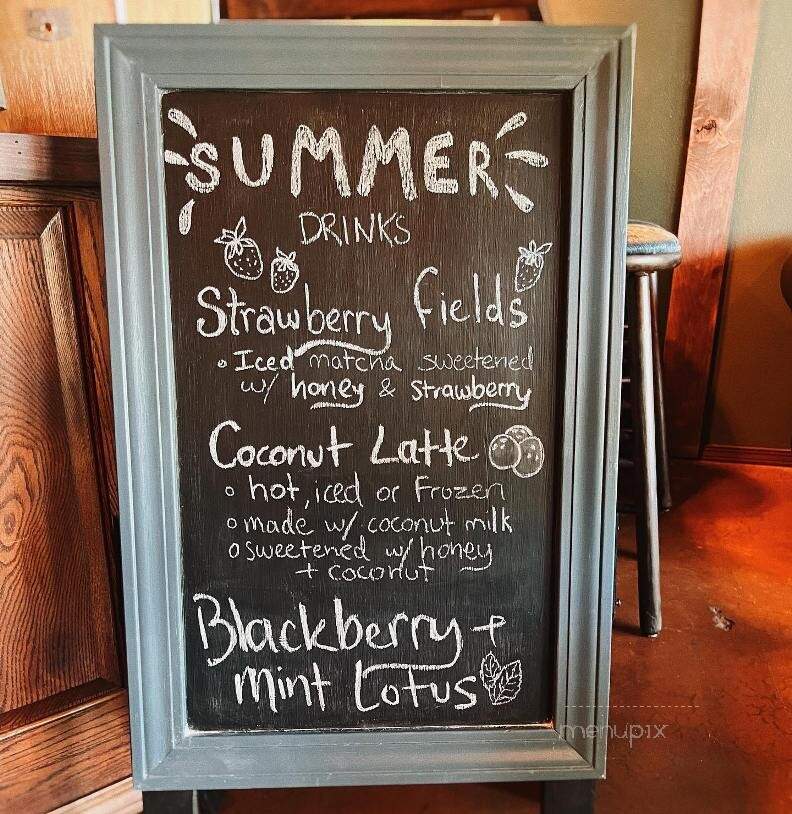 SUMMER
DRINKS
Strawberry Fields
• Iced matcha sweetened
w/ honey & strawberry
Coconut Latte
o hot, iced or Frozen
o made w/ coconut milk
o sweetened w/ honey
+ coconut
Blackberry +
Mint Lotus
menupix